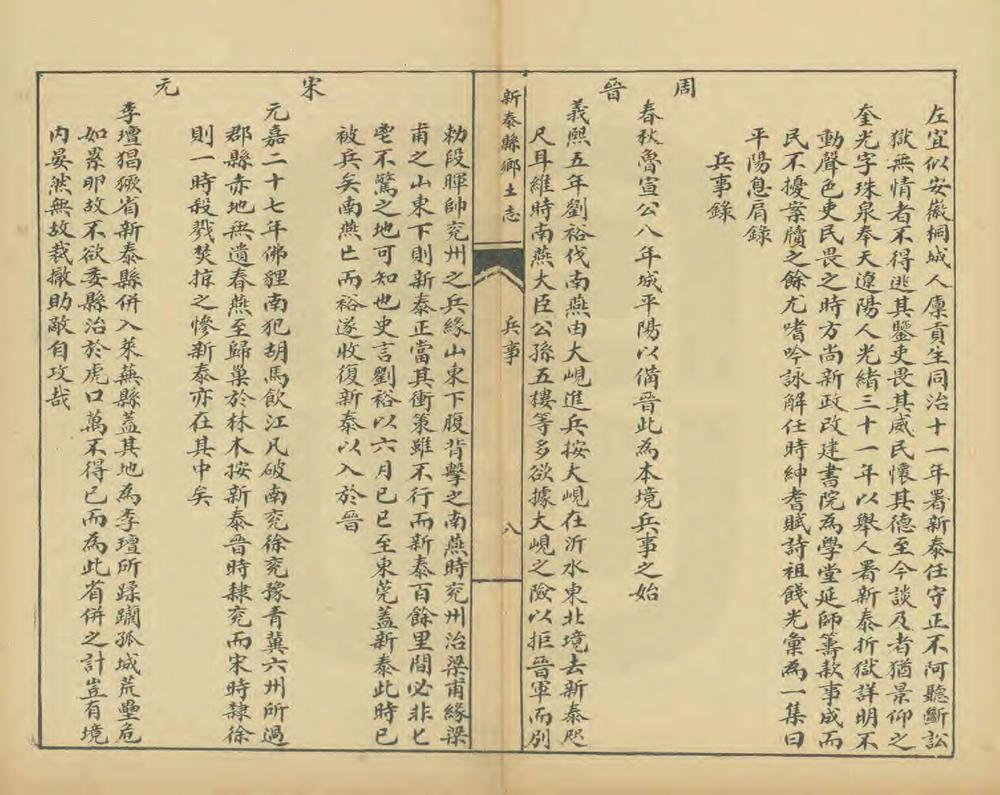 左宜似安徽桐城人廩貢生同治十一年署新泰任守正不阿聽斷訟
獄無情者不得逃其鑒吏畏其威民懷其德至今談及者猶景仰之
奎光字珠泉奉天遼陽人光緒三十一年以舉人署新泰折獄詳明不
動聲色吏民畏之時方尚新政改建書院為學堂延師籌款事成而
民不擾案牘之餘尤嗜吟詠解任時紳耆賦詩祖餞光彙為一集曰
平陽息肩錄
兵事錄
周
春秋魯宣公八年城平陽以備晉此為本境兵事之始
晉
義熙五年劉裕伐南燕由大峴進兵按大峴在沂水東北境去新泰咫
尺耳維時南燕大臣公孫五樓等多欲據大峴之險以拒晉軍而別
新泰縣鄉土志
兵事
八
勅段暉帥兖州之兵緣山東下腹背擊之南燕時兖州治梁甫緣梁
甫之山東下則新泰正當其衝策雖不行而新泰百餘里間必非匕
鬯不驚之地可知也史言劉裕以六月己巳至東莞蓋新泰此時已
被兵矣南燕亡而裕遂收復新泰以入於晉
宋
元嘉二十七年佛貍南犯胡馬飲江凡破南兖徐兖豫青冀六州所過
郡縣赤地無遺春燕至歸巢於林木按新泰晉時隸兖而宋時隸徐
則一時殺戮焚掠之慘新泰亦在其中矣
元
李璮猖獗省新泰縣併入萊蕪縣蓋其地為李璮所蹂躪孤城荒壘危
如累卵故不欲委縣治於虎口萬不得已而為此省併之計豈有境
內晏然無故裁撤助敵自攻哉